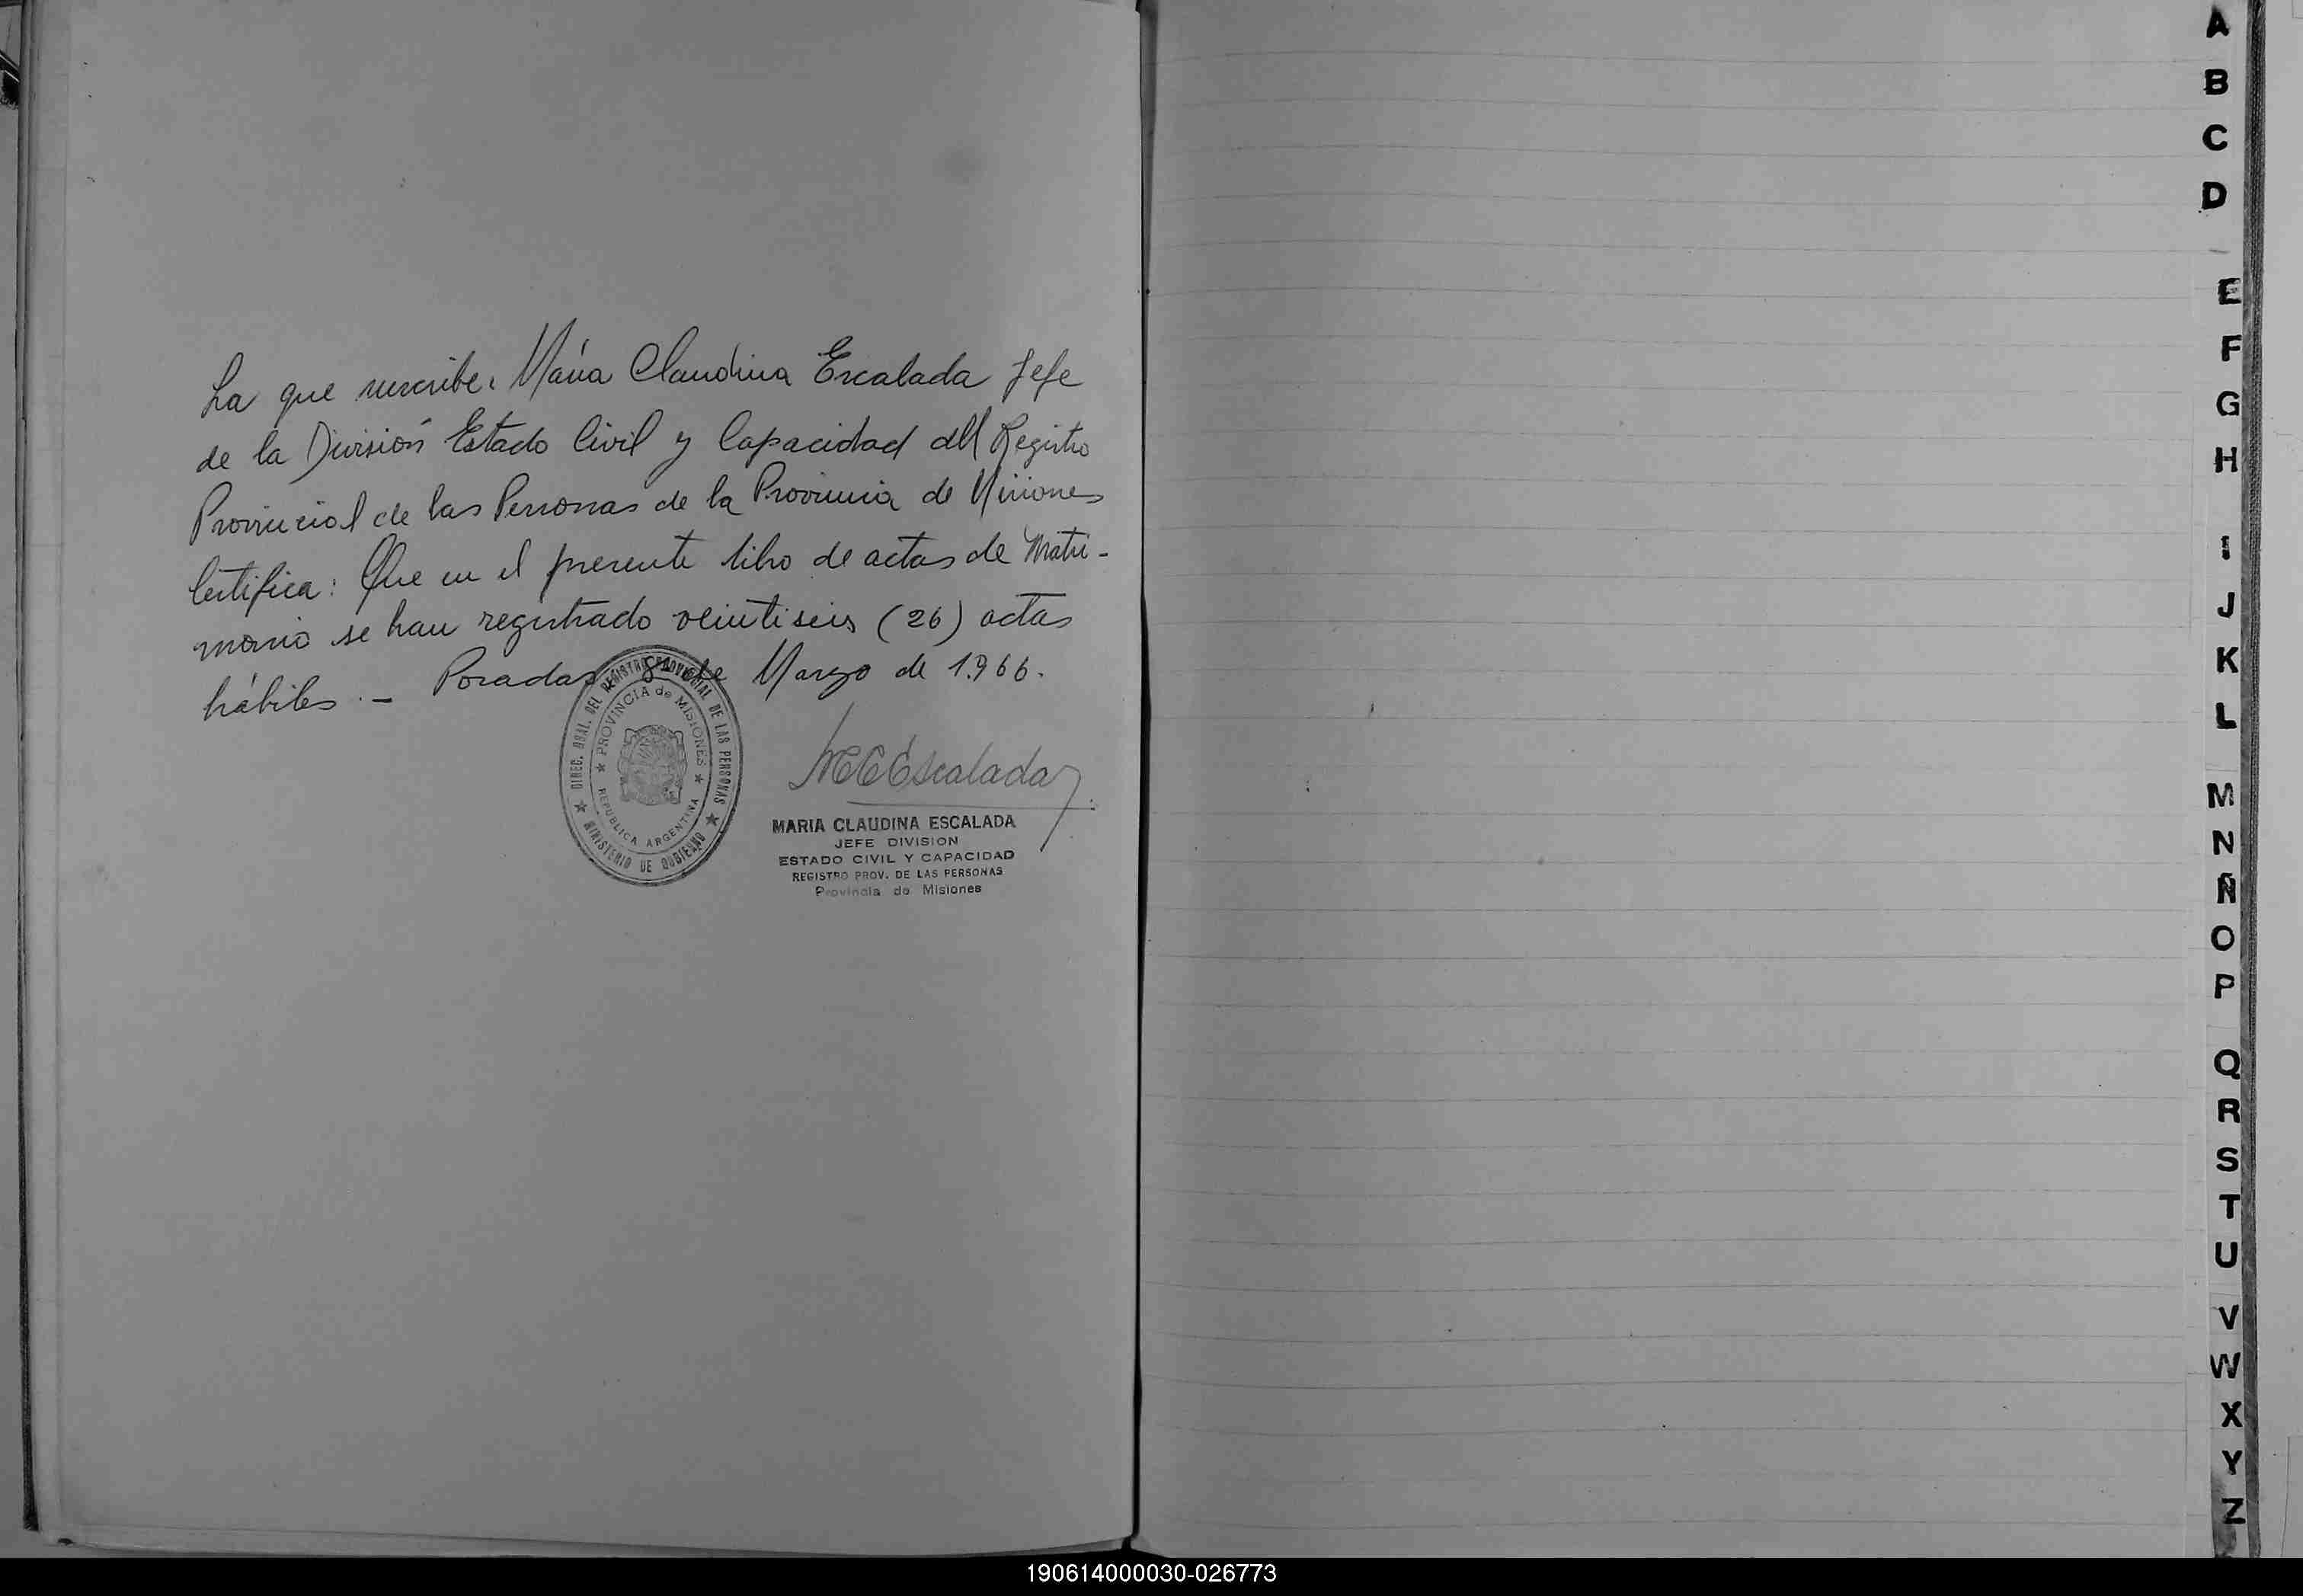 La que suscribe, María Claudina Escalada Jefe
de la División Estado Civil y Capacidad del Registro
Provincial de las Personas de la Provincia de Misiones
Certifica: Que en el presente libro de actas de Matri-
monio se han registrado veintiseis (26) actas
hábiles. - Posadas, 8 de Marzo de 1.966.
DIREC. GRAL. DEL REGISTRO PROVINCIAL DE LAS PERSONAS
PROVINCIA de MISIONES
REPUBLICA ARGENTINA
MINISTERIO DE GOBIERNO
MCEscalada
MARIA CLAUDINA ESCALADA
JEFE DIVISION
ESTADO CIVIL Y CAPACIDAD
REGISTRO PROV. DE LAS PERSONAS
Provincia de Misiones
A
B
C
D
E
F
G
H
I
J
K
L
M
N
Ñ
O
P
Q
R
S
T
U
V
W
X
Y
Z
190614000030-026773